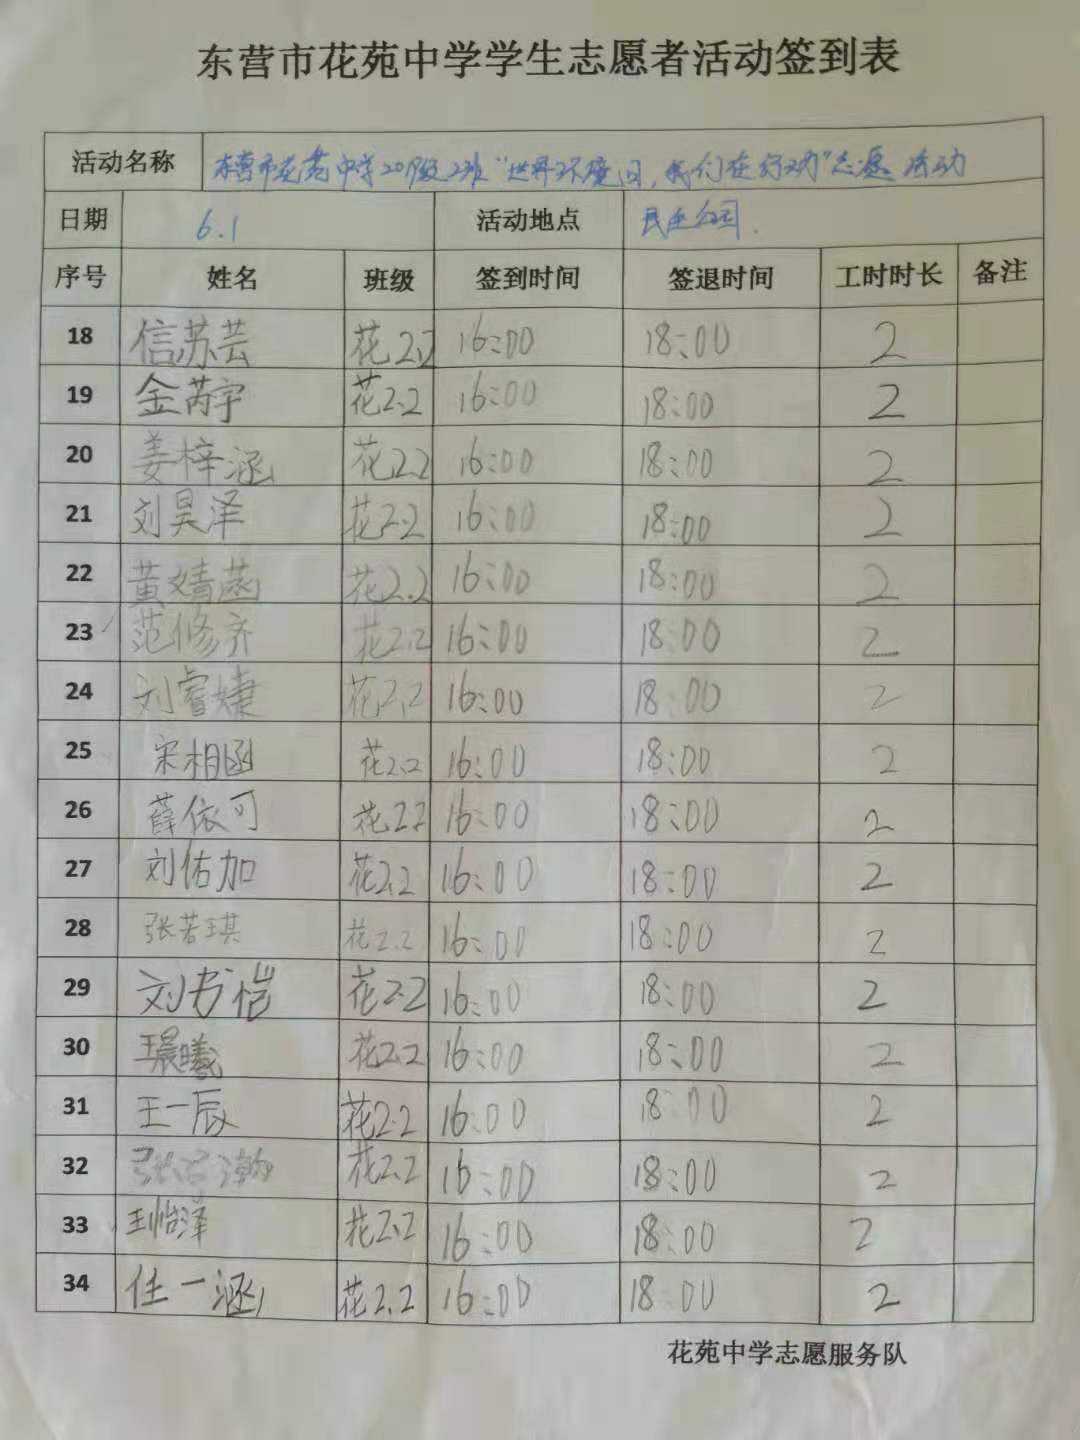 东营市花苑中学学生志愿者活动签到表
活动名称 东营市花苑中学2019级2班“世界环境日,我们在行动”志愿活动
日期 6.1 活动地点 民生公园.
序号 姓名 班级 签到时间 签退时间 工时时长 备注
18 信苏芸 花2.2 16:00 18:00 2
19 金芮宇 花2.2 16:00 18:00 2
20 姜梓涵 花2.2 16:00 18:00 2
21 刘昊泽 花2.2 16:00 18:00 2
22 黄婧菡 花2.2 16:00 18:00 2
23 范修齐 花2.2 16:00 18:00 2
24 刘睿婕 花2.2 16:00 18:00 2
25 宋相函 花2.2 16:00 18:00 2
26 薛依可 花2.2 16:00 18:00 2
27 刘佑加 花2.2 16:00 18:00 2
28 张若琪 花2.2 16:00 18:00 2
29 刘书恺 花2.2 16:00 18:00 2
30 王晨曦 花2.2 16:00 18:00 2
31 王一辰 花2.2 16:00 18:00 2
32 花2.2 16:00 18:00 2
33 王怡泽 花2.2 16:00 18:00 2
34 任一涵 花2.2 16:00 18:00 2
花苑中学志愿服务队